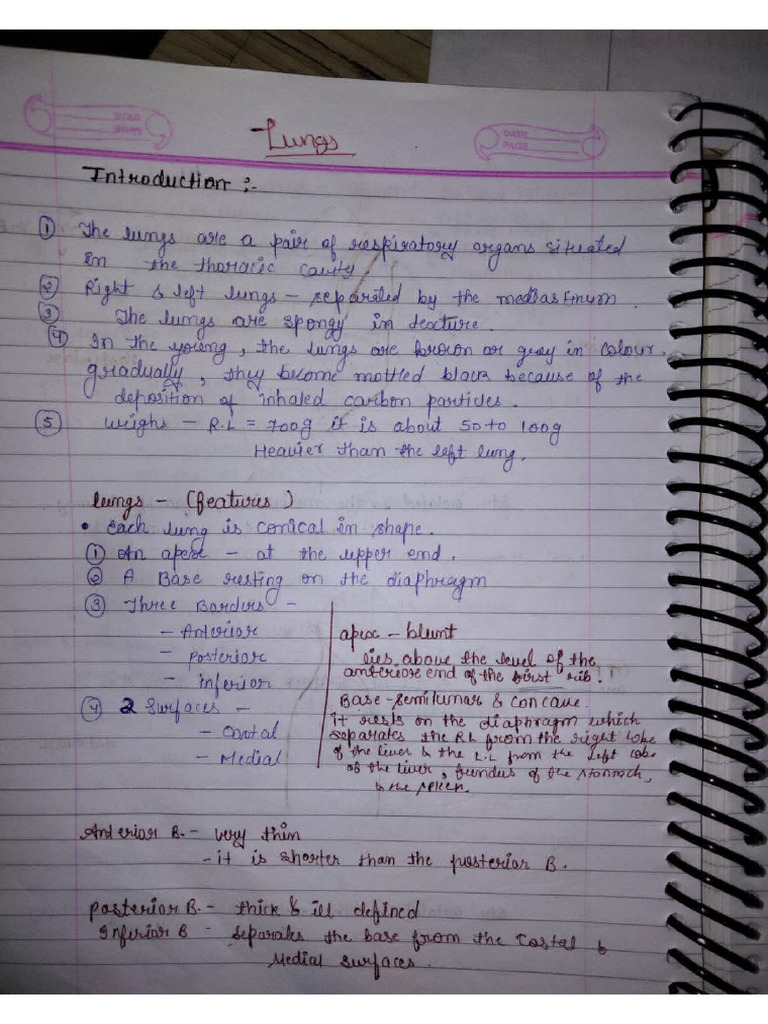 Lungs
Introduction :-
① The lungs are a pair of respiratory organs situated
in the thoracic cavity.
② Right & left lungs - separated by the mediastinum.
③ The lungs are spongy in texture.
④ In the young, the lungs are brown or grey in colour.
gradually, they become mottled black because of the
deposition of inhaled carbon particles.
⑤ weighs - R.L = 700g it is about 50 to 100g
Heavier than the left lung.
lungs - (features)
• Each lung is conical in shape.
① An apex - at the upper end.
② A Base resting on the diaphragm
③ Three Borders -
- Anterior
- posterior
- inferior
④ 2 Surfaces -
- Costal
- Medial
apex - blunt
lies above the level of the
anterior end of the first rib.
Base - semilunar & concave.
it rests on the diaphragm which
separates the RL from the right lobe
of the liver & the L.L from the left lobe
of the liver, fundus of the stomach,
& the spleen.
Anterior B. - very thin
- it is shorter than the posterior B.
posterior B. - thick & ill defined
Inferior B - separates the base from the costal &
Medial surfaces.